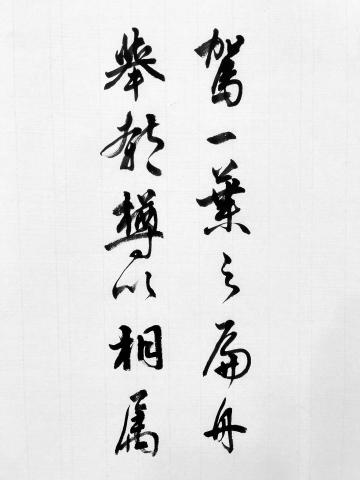 駕一葉之扁舟
舉匏樽以相属